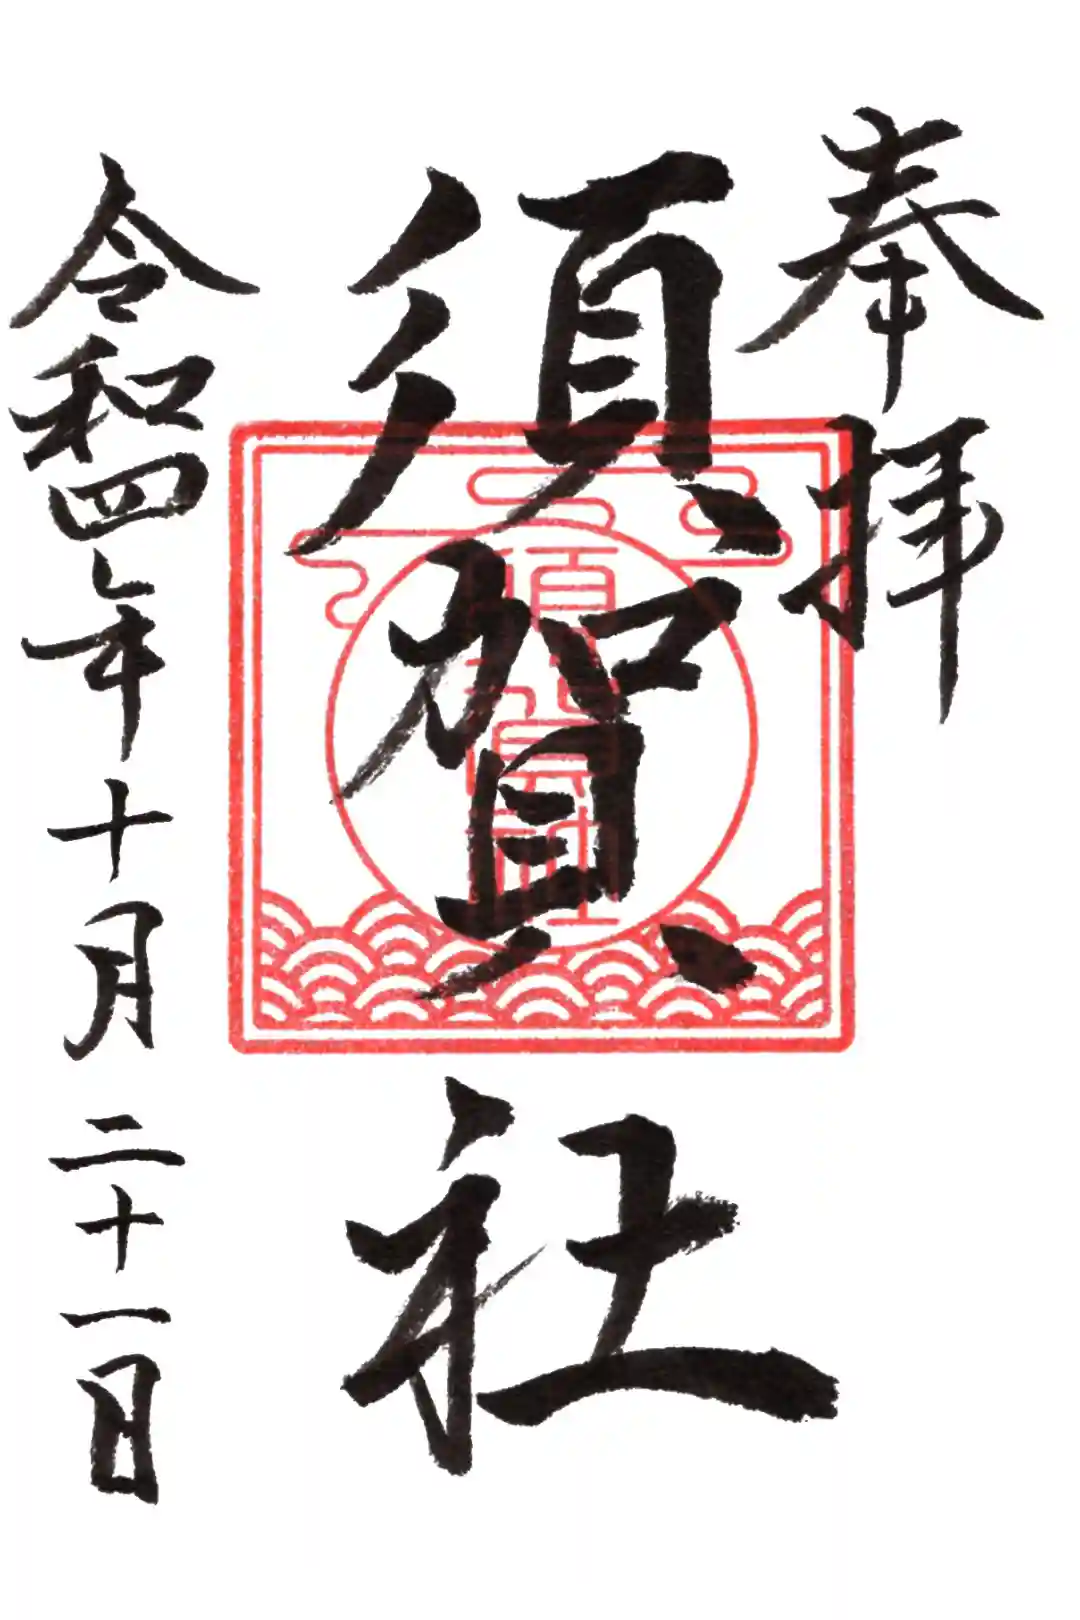 奉拝
須賀社
須賀社
令和四年十月二十一日